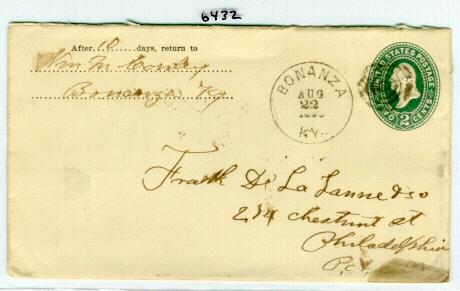 6432
After 10 days, return to
Wm M
Bonanza, Ky
BONANZA
AUG
22
KY.
UNITED STATES POSTAGE
TWO 2 CENTS
Frank De La Lanne & Co
214 Chestnut St
Philadelphia